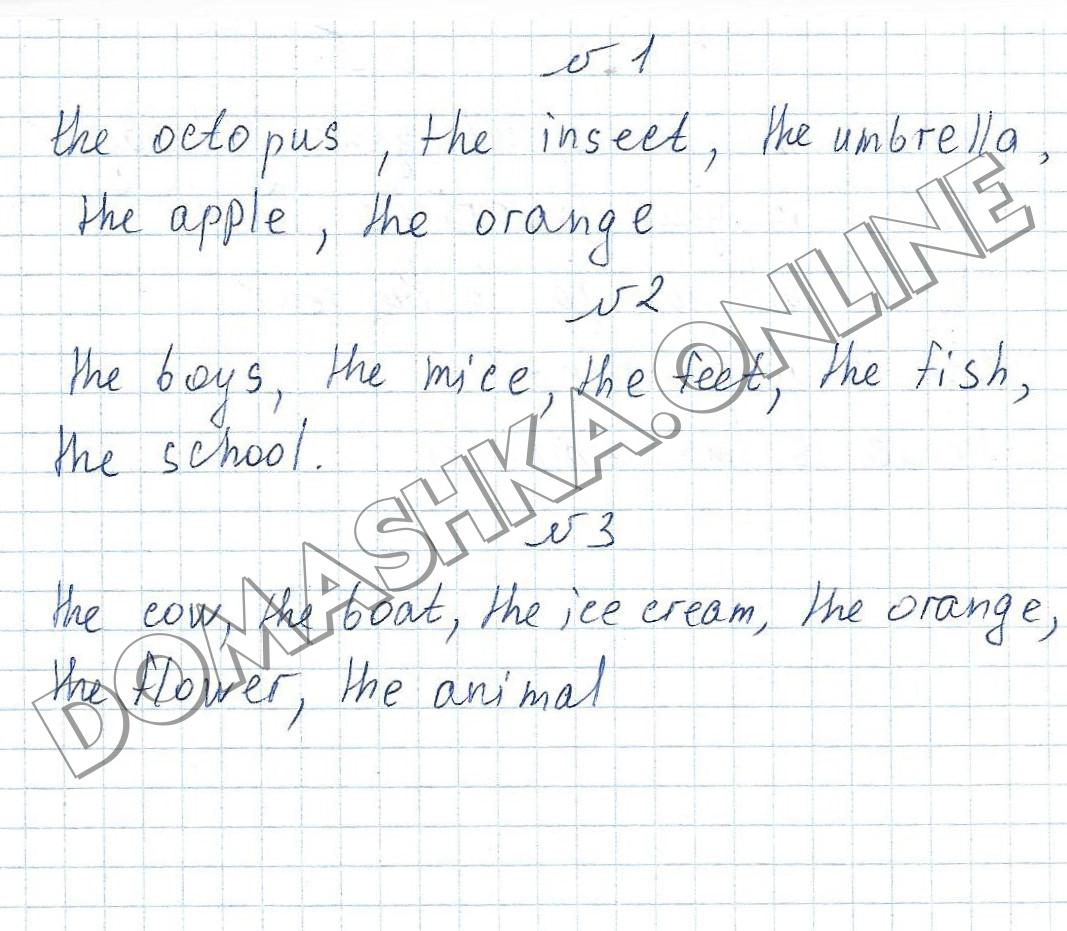 № 1
the octopus, the insect, the umbrella,
the apple, the orange
№ 2
the boys, the mice, the feet, the fish,
the school.
№ 3
the cow, the boat, the ice cream, the orange,
the flower, the animal
DOMASHKA.ONLINE